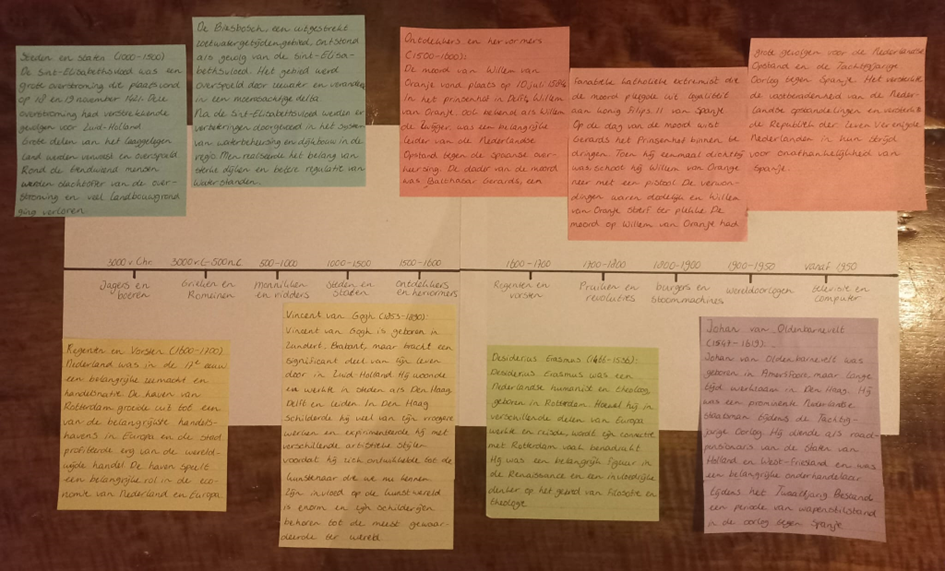 Steden en staten (1000-1500)
De Sint-Elisabethsvloed was een
grote overstroming die plaatsvond
op 18 en 19 november 1421. Deze
overstroming had verschillende
gevolgen voor Zuid-Holland
Grote delen van het laaggelegen
land werden verwoest en overspoeld
Rond de tienduizend mensen
werden slachtoffer van de over-
stroming en veel landbouwgrond
ging verloren.
De Biesbosch, een uitgestrekt
zoetwatergetijdengebied, ontstond
als gevolg van de Sint-Elisa-
bethsvloed. Het gebied werd
overspoeld door zeewater en veranderde
in een moerasachtige delta.
Na de Sint-Elisabethsvloed werden er
verbeteringen doorgevoerd in het systeem
van waterbeheersing en dijkbouw in de
regio. Men realiseerde het belang van
sterke dijken en betere regulatie van
waterstanden.
Ontdekkers en hervormers
(1500-1600):
De moord van Willem van
Oranje vond plaats op 10 juli 1584
in het prinsenhof in Delft. Willem
van Oranje, ook bekend als Willem
de Zwijger, was een belangrijke
leider van de Nederlandse
Opstand tegen de Spaanse over-
heersing. De dader van de moord
was Balthasar Gerards, een
fanatieke katholieke extremist die
de moord pleegde uit loyaliteit
aan koning Filips II van Spanje
Op de dag van de moord wist
Gerards het Prinsenhof binnen te
dringen. Toen hij eenmaal dichtbij
was schoot hij Willem van Oranje
neer met een pistool. De verwon-
dingen waren dodelijk en Willem
van Oranje stierf ter plekke. De
moord op Willem van Oranje had
grote gevolgen voor de Nederlandse
Opstand en de Tachtigjarige
Oorlog tegen Spanje. Het versterkte
de vastberadenheid van de Neder-
landse opstandelingen en versterkte
de Republiek der Zeven Verenigde
Nederlanden in hun strijd
voor onafhankelijkheid van
Spanje.
3000 v. Chr.
Jagers en
boeren
3000 v.C.-500 n.C
Grieken en
Romeinen
500-1000
Monniken
en ridders
1000-1500
Steden en
staten
1500-1600
ontdekkers
en hervormers
1600-1700
Regenten en
vorsten
1700-1700
Pruiken en
revoluties
1700-1900
burgers en
stoommachines
1900-1950
wereldoorlogen
vanaf 1950
televisie en
computer
Regenten en Vorsten (1600-1700)
Nederland was in de 17e eeuw
een belangrijke zeemacht en
handelsnatie. De haven van
Rotterdam groeide uit tot een
van de belangrijkste handels-
havens in Europa en de stad
profiteerde erg van de wereld-
wijde handel. De haven speelt
een belangrijke rol in de eco-
nomie van Nederland en Europa.
Vincent van Gogh (1853-1890):
Vincent van Gogh is geboren in
Zundert, Brabant, maar bracht een
significant deel van zijn leven
door in Zuid-Holland. Hij woonde
en werkte in steden als Den Haag,
Delft en Leiden. In Den Haag
schilderde hij veel van zijn vroegere
werken en experimenteerde hij met
verschillende artistieke stijlen
voordat hij zich ontwikkelde tot de
kunstenaar die we nu kennen.
Zijn invloed op de kunstwereld
is enorm en zijn schilderijen
behoren tot de meest gewaar-
deerde ter wereld.
Desiderius Erasmus (1466-1536):
Desiderius Erasmus was een
Nederlandse humanist en theoloog,
geboren in Rotterdam. Hoewel hij in
verschillende delen van Europa
werkte en reisde, wordt zijn connectie
met Rotterdam vaak benadrukt
Hij was een belangrijk figuur in
de Renaissance en een invloedrijke
denker op het gebied van filosofie en
theologie
Johan van Oldenbarnevelt
(1547-1619).
Johan van Oldenbarnevelt was
geboren in Amersfoort, maar lange
tijd werkzaam in Den Haag. Hij
was een prominente Nederlandse
staatsman tijdens de Tachtig-
jarige Oorlog. Hij diende als raad-
pensionaris van de Staten van
Holland en West-Friesland en was
een belangrijke onderhandelaar
tijdens het Twaalfjarig Bestand
een periode van wapenstilstand
in de oorlog tegen Spanje